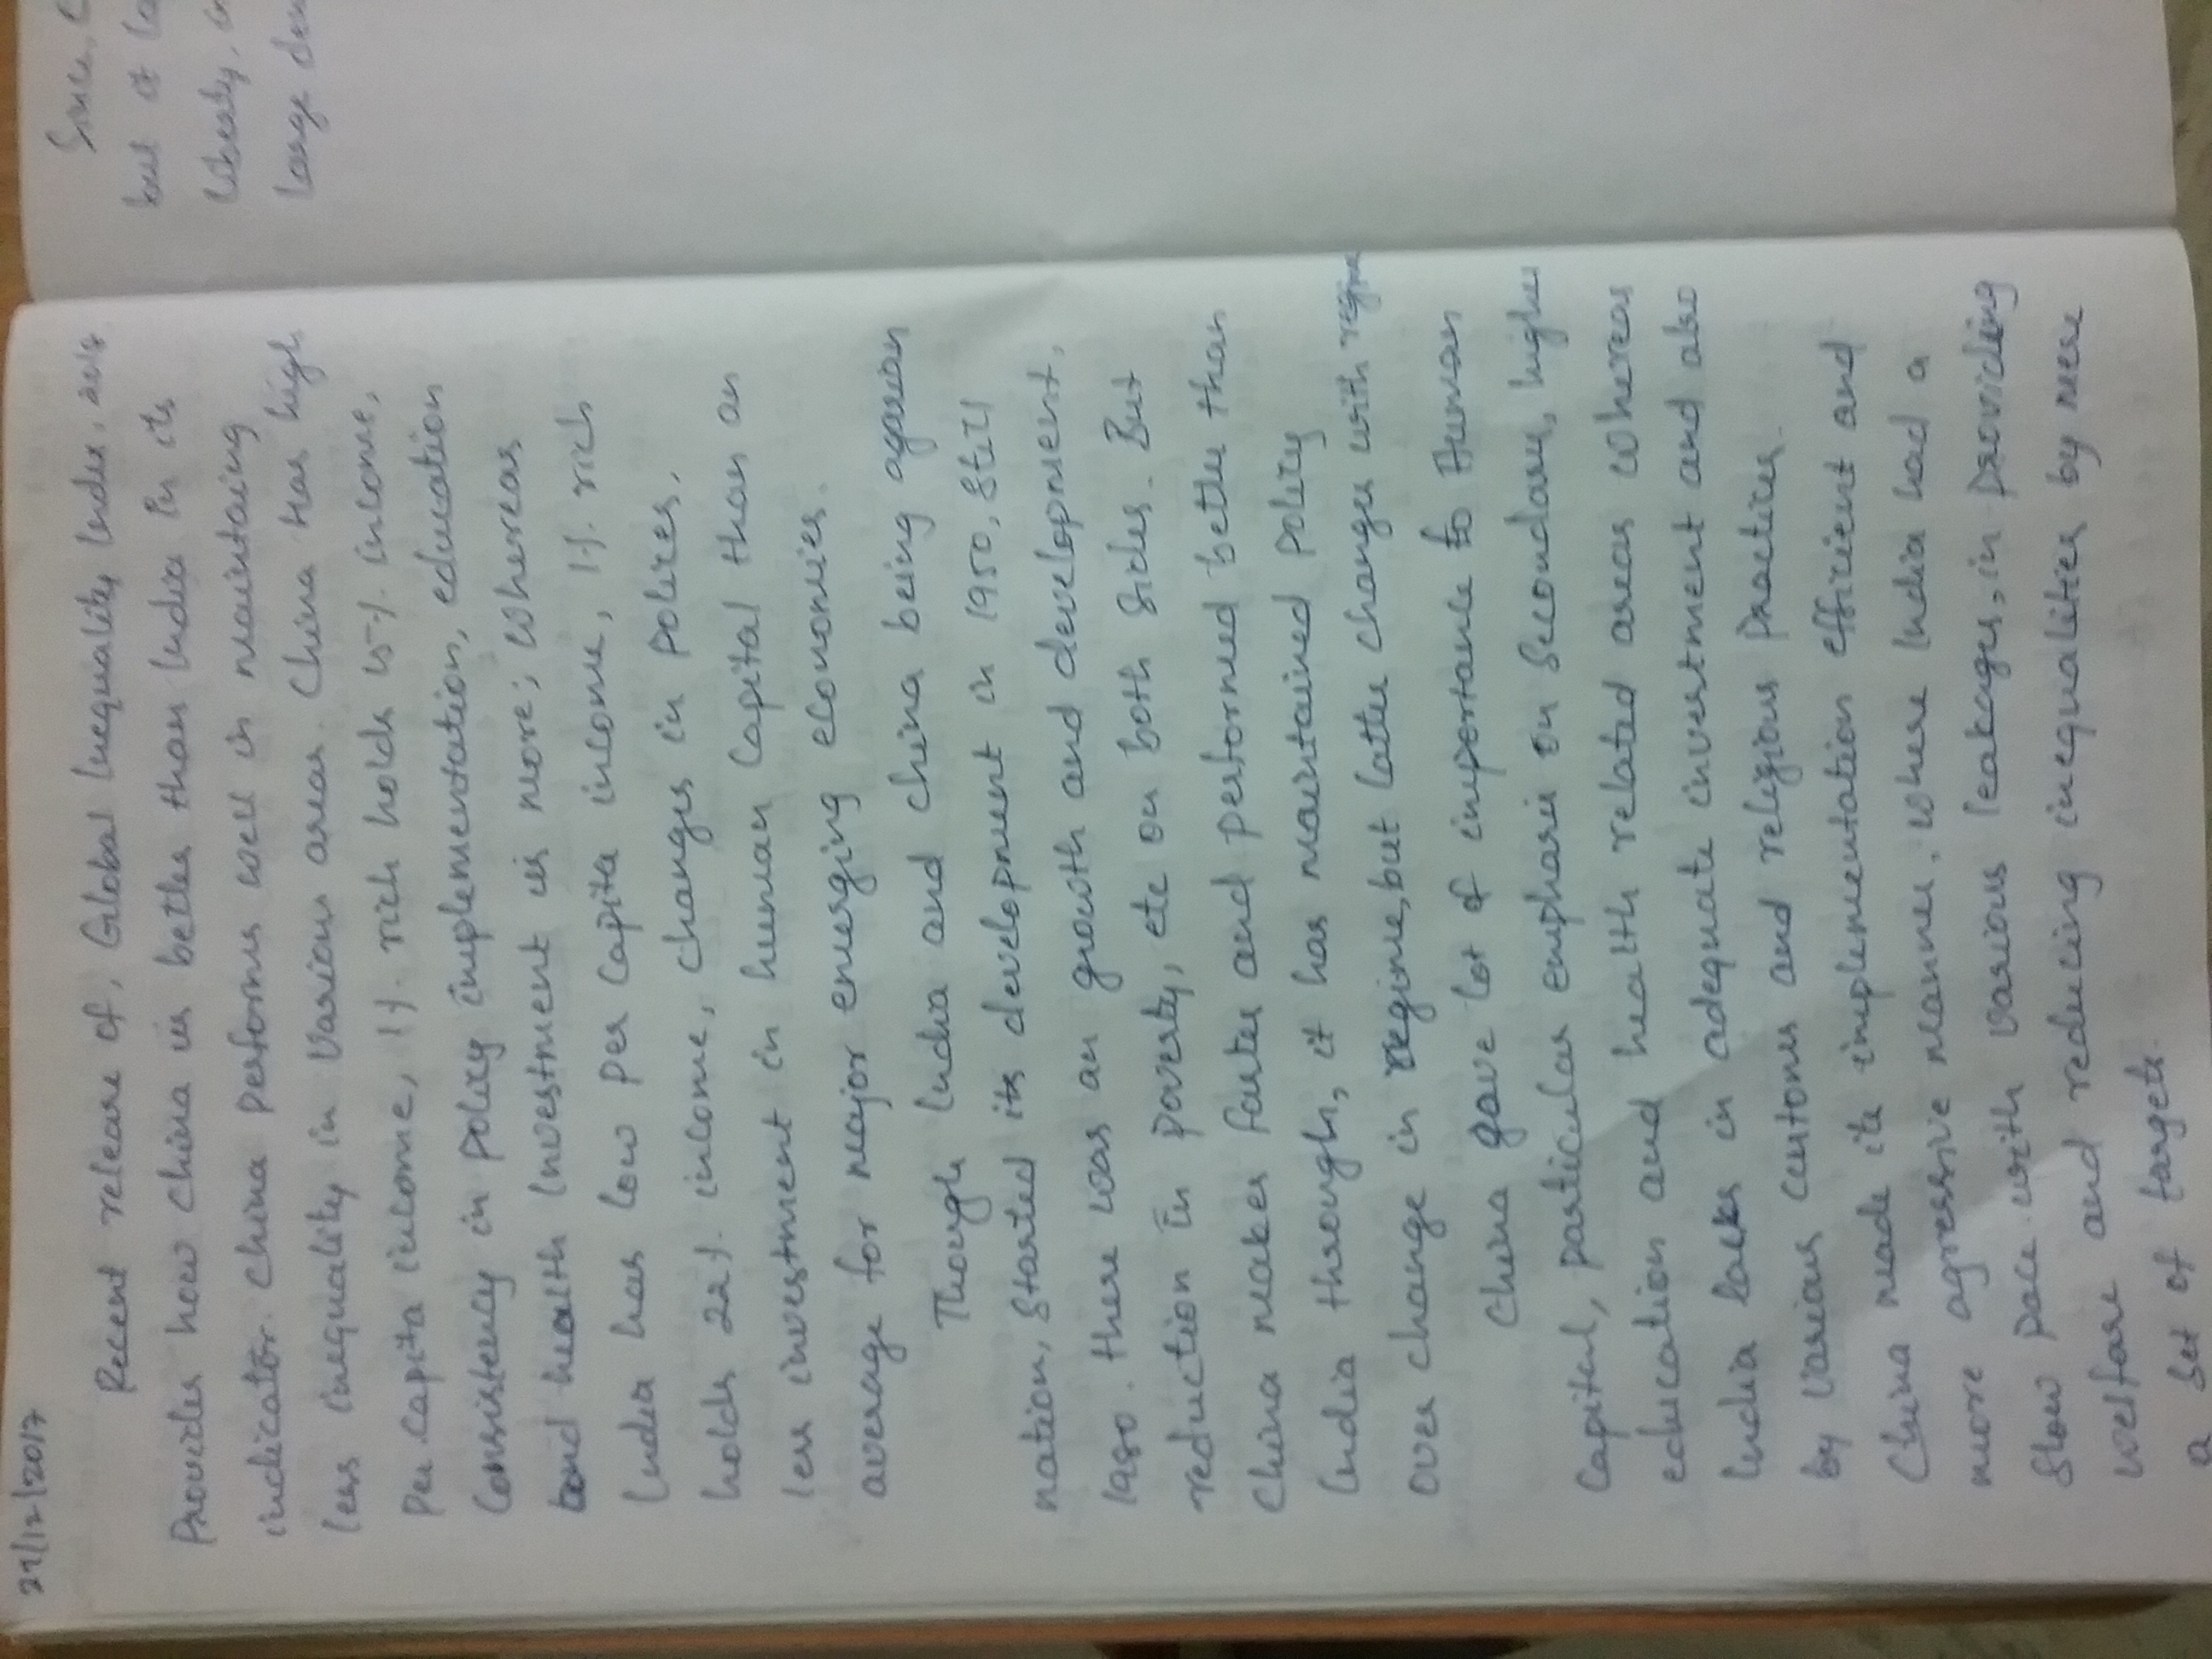 21/12/2017
Recent release of, Global Inequality Index, 2018
Provides how China is better than India in its
indicator. China performs well in maintaing
less inequality in various areas. China has high
Per capita income, 1% rich holds 15% income,
Consistency in policy implementation, education
and health investment is more; whereas
India has low per capita income, 1% rich
holds 22% income, changes in polices,
less investment in human capital than an
average for major emerging economies.
Though India and China being agrarian
nation, started its development in 1950, still
1980. there was an growth and development,
reduction in poverty, etc on both sides. But
China makes faster and performed better than
India through, it has maintained policy
over change in regime, but latter changes with regime
China gave lot of importance to Human
Capital, particular emphasis on secondary, higher
education and health related areas whereas
India lacks in adequate investment and also
by various customs and religious practices.
China made its implementation efficient and
more agressive manner. where India had a
slow pace with various leakages, in providing
welfare and reducing inequalities by mere
a set of targets.
Since,
but it
liberty,
large